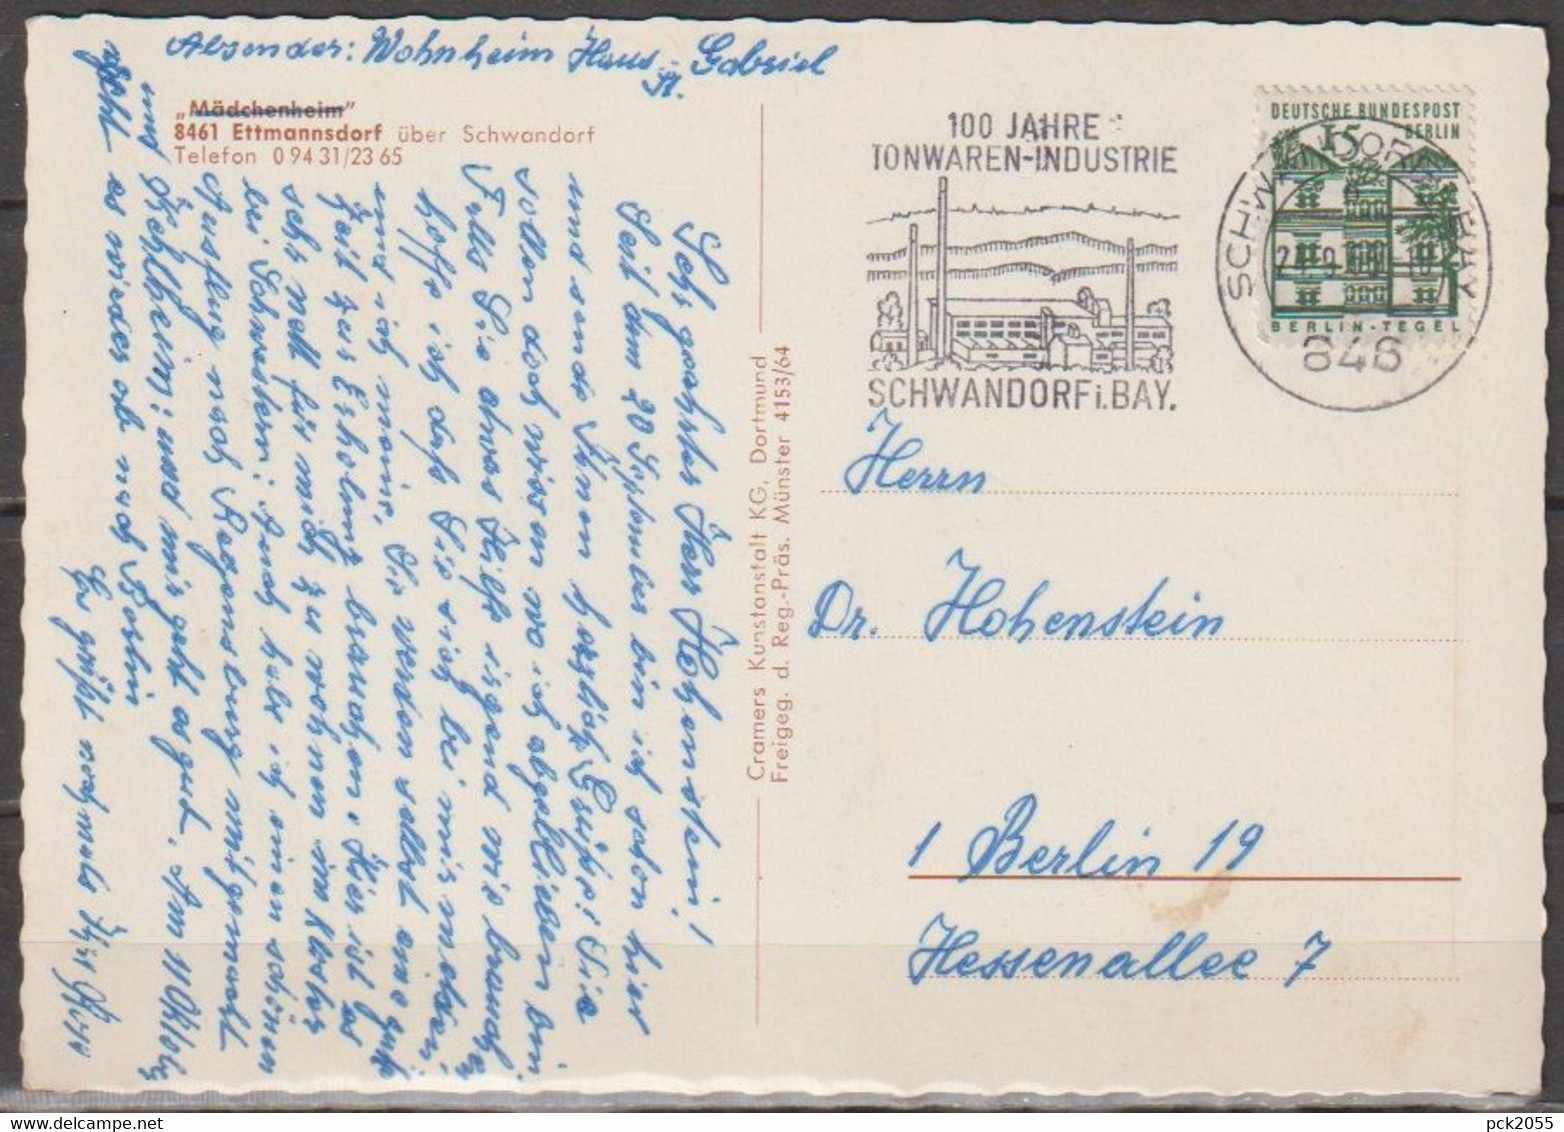 Absender: Wohnheim Haus St. Gabriel
„Mädchenheim"
8461 Ettmannsdorf über Schwandorf
Telefon 0 94 31/23 65
Sehr geehrter Herr Hohenstein!
Seit dem 20 September bin ich schon hier
und sende Ihnen herzliche Grüße! Sie
sollen doch wissen wo ich abgeblieben bin
Falls Sie etwas Hilfe irgend wie brauchen
hoffe ich daß Sie sich bei mir melden!
und ich meine, Sie werden selbst eine gute
Zeit zur Erholung brauchen. Hier ist es
sehr nett für mich zu wohnen im Kloster
bei Schwestern; Auch habe ich einen schönen
Ausflug nach Regensburg mitgemacht
und Kehlheim; und mir geht es gut. Am 11 Oktober
geht es wieder ab nach Berlin
Es grüßt nochmals Ihr
Cramers Kunstanstalt KG, Dortmund
Freigeg. d. Reg.-Präs. Münster 4153/64
100 JAHRE
TONWAREN-INDUSTRIE
SCHWANDORF i. BAY.
DEUTSCHE BUNDESPOST
15 BERLIN
BERLIN-TEGEL
SCHWANDORF BAY
846
Herrn
Dr. Hohenstein
1 Berlin 19
Hessenallee 7
pck2055